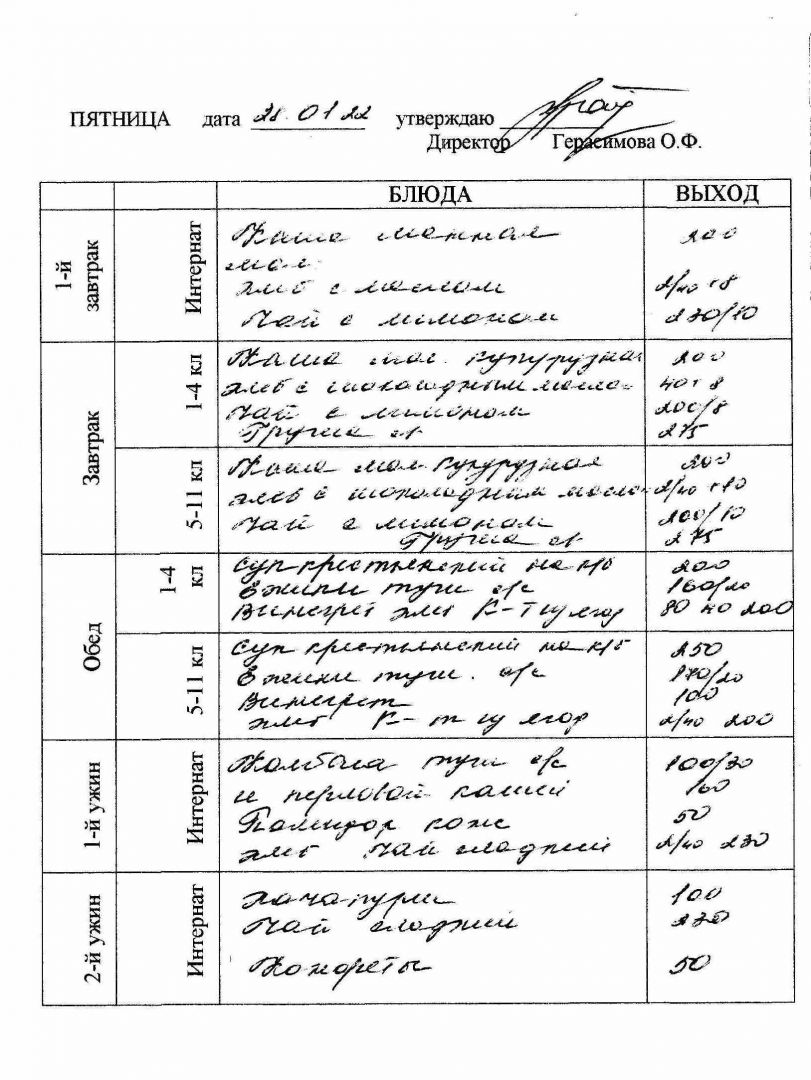 ПЯТНИЦА дата 28.01.22 утверждаю
Директор Герасимова О.Ф.
БЛЮДА ВЫХОД
1-й завтрак
Интернат
Каша манная 200
мол.
хлеб с маслом 2/40 +8
Чай с лимоном 230/10
Завтрак
1-4 кл
Каша мол. кукурузная 200
хлеб с шокошдным масло- 40+8
Чай с лимоном 200/8
Груша св 275
5-11 кл
Каша мол. кукурузная 200
хлеб с шоколадным масло- 2/40 +10
Чай с лимоном 200/10
Груша св 275
Обед
1-4 кл
Суп крестьянский на к/б 200
Ежики туш с/с 160/20
Винегрет хлеб К-т из ягод 80 40 200
5-11 кл
Суп крестьянский на к/б 250
Ежики туш. с/с 170/20
Винегрет 100
хлеб К-т из ягод 2/40 200
1-й ужин
Интернат
Колбаса туш с/с 100/30
и перловой кашей 160
Помидор конс 50
хлеб Чай сладкий 2/40 230
2-й ужин
Интернат
Хачапури 100
Чай сладкий 230
Конфеты 50